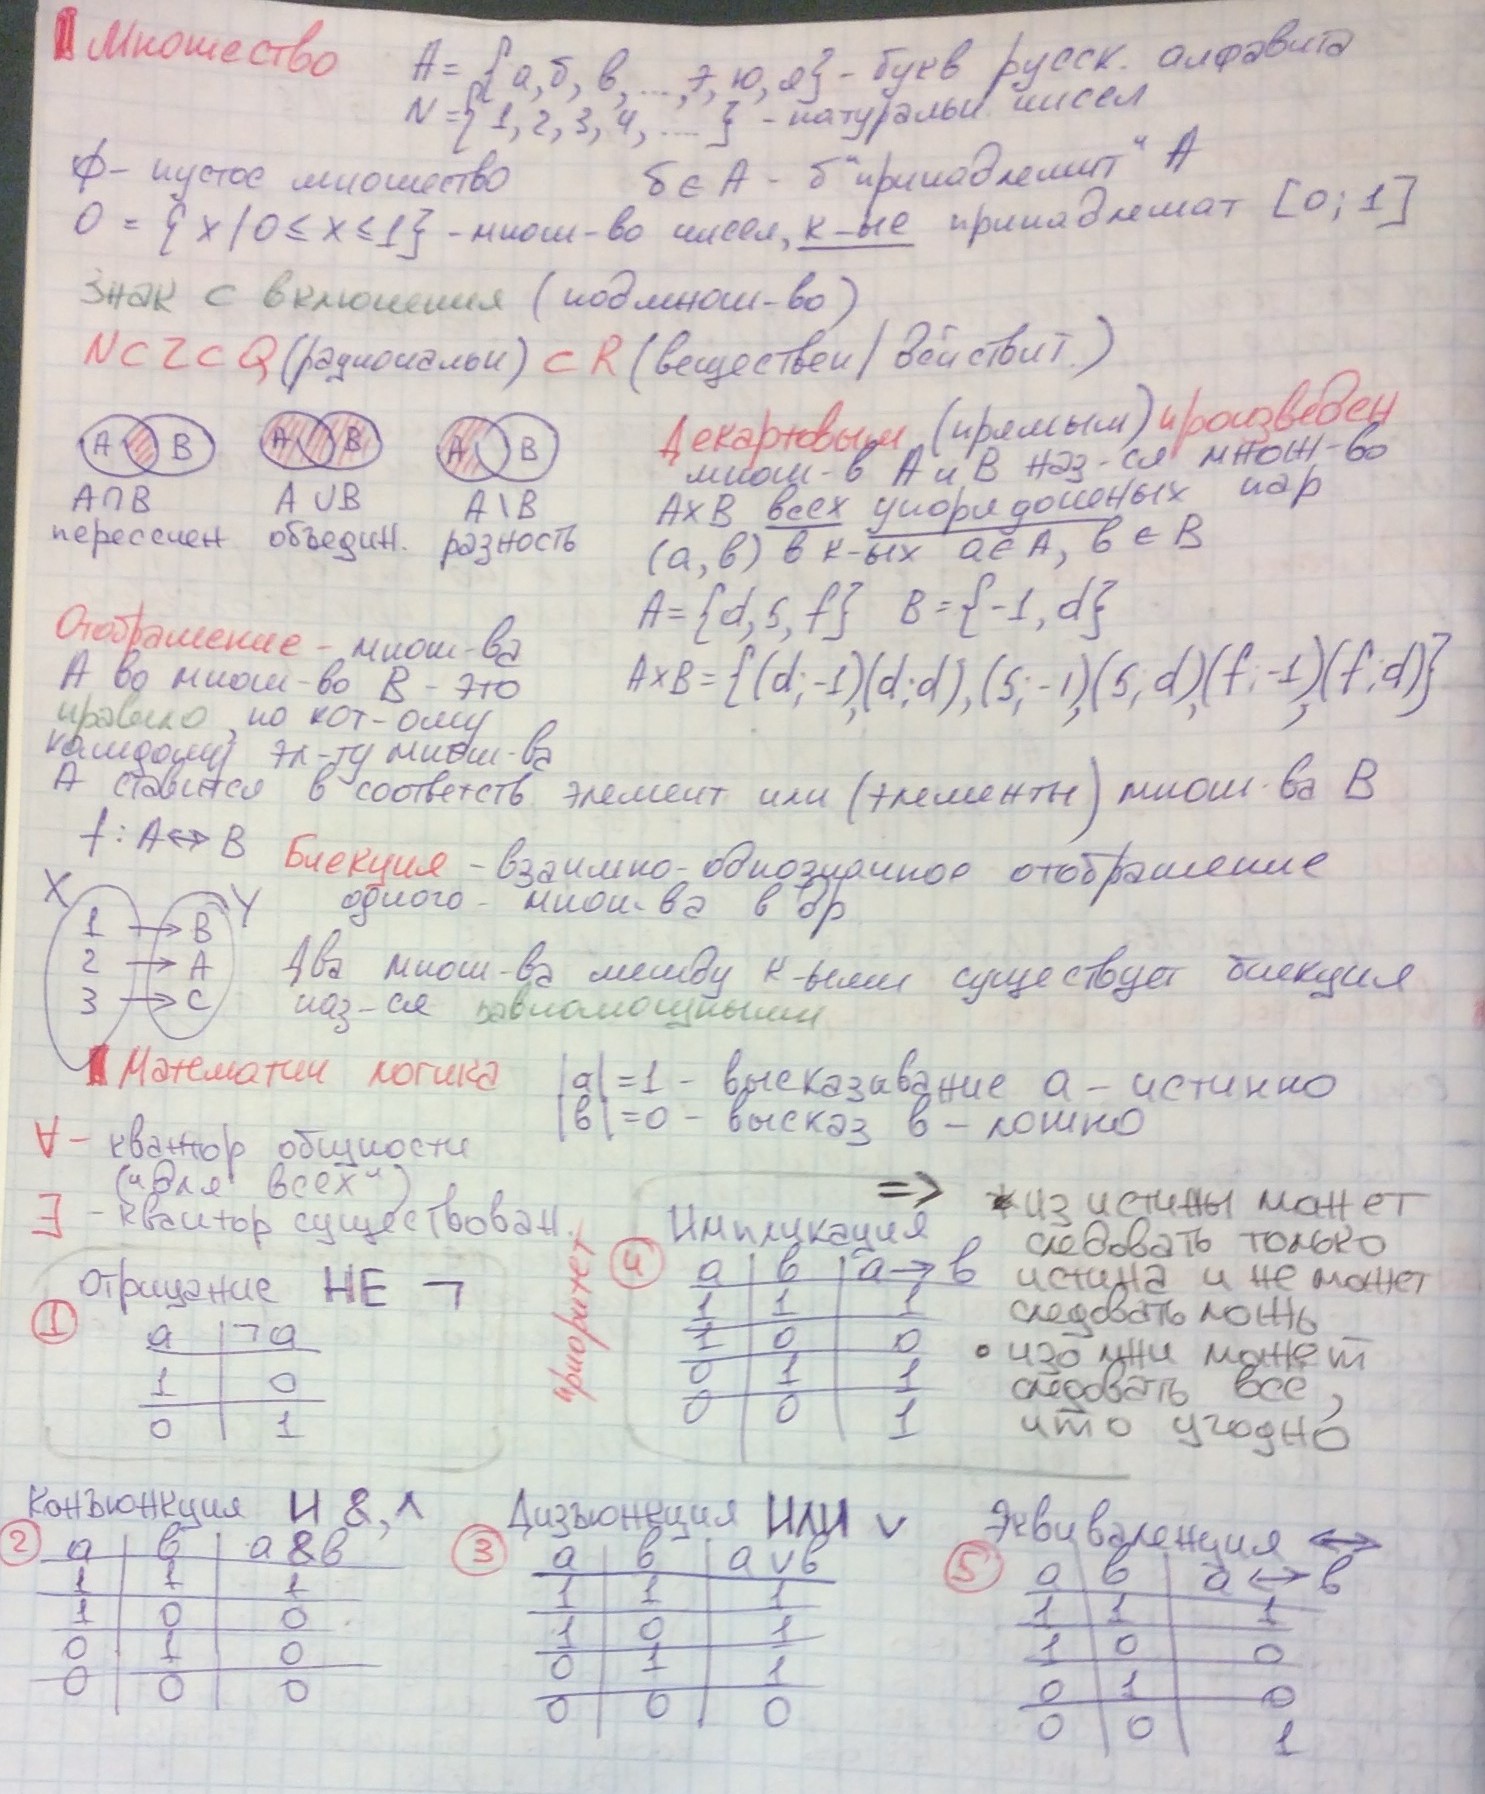 Множество
A = {а, б, в, ..., э, ю, я} - букв русск. алфавита
N = {1, 2, 3, 4, ....} - натуральн чисел
Ф - пустое множество б ∈ A - б "принадлежит" A
O = {x | 0 ≤ x ≤ 1} - множ-во чисел, к-ые принадлежат [0; 1]
Знак ⊂ включения (подмнож-во)
N ⊂ Z ⊂ Q (рациональн) ⊂ R (веществен / действит.)
A B A B A B
A∩B A∪B A\B
пересечен объедин. разность
Декартовым (прямым) произведен
множ-в A и B наз-ся множ-во
A×B всех упорядоченых пар
(a, в) в к-ых a ∈ A, в ∈ B
A = {d, s, f} B = {-1, d}
A×B = {(d; -1), (d; d), (s; -1), (s, d), (f; -1), (f; d)}
Отображение - множ-ва
A во множ-во B - это
правило, по кот-ому
каждому эл-ту множ-ва
A ставится в соответств элемент или (элементы) множ-ва B
f: A ↔ B
X Y
1 → B
2 → A
3 → C
Биекция - взаимно-однозначное отображение
одного - множ-ва в др
Два множ-ва между к-ыми существует биекция
наз-ся равномощными
Математич логика
|a| = 1 - высказывание a - истинно
|в| = 0 - высказ в - ложно
∀ - квантор общности
("для всех")
∃ - квантор существован.
приоритет
Отрицание НЕ ¬
1
a ¬a
1 0
0 1
Импликация =>
4
a в a → в
1 1 1
1 0 0
0 1 1
0 0 1
• из истины может
следовать только
истина и не может
следовать ложь
• изо лжи может
следовать всё,
что угодно
Конъюнкция И &, ∧
2
a в a & в
1 1 1
1 0 0
0 1 0
0 0 0
Дизъюнкция ИЛИ ∨
3
a в a ∨ в
1 1 1
1 0 1
0 1 1
0 0 0
Эквиваленция ↔
5
a в a ↔ в
1 1 1
1 0 0
0 1 0
0 0 1